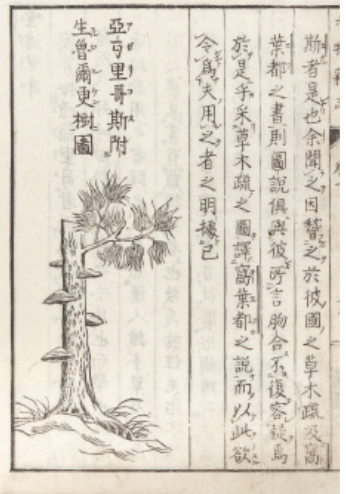 斯者是也余聞之因讐之於彼國之草木疏及寫
葉都之書則圖說俱與彼所言脗合不復容疑焉
於是乎采草木疏之圖譯寫葉都之說而以此欲
令爲夫用之者之明據已
亞亨里哥斯附
生魯爾更樹圖